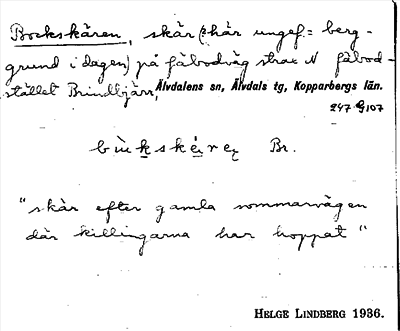 Bockskåren, skår (? här ungef. = berg-
grund i dagen) på fäbodväg strax N fäbod-
stället Brindbjärr, Älvdalens sn, Älvdals tg, Kopparbergs län.
247 G 107
Br.
"skår efter gamla sommarvägen
där killingarna har hoppat"
HELGE LINDBERG 1936.